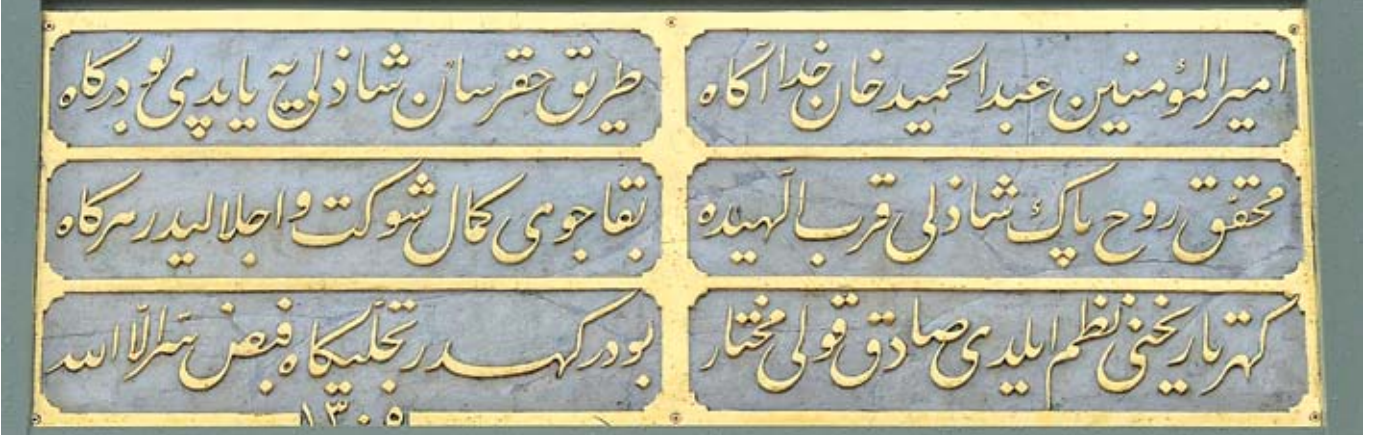 امیرالمؤمنین عبدالحمید خان خدا آگاه
طریق حقرسان شاذلی یه یاپدی بو درگاه
محقق روح پاك شاذلی قرب الهیده
بقا جوی کمال شوکت و اجلالیدر هرگاه
گهر تاریخنی نظم ایلدی صادق قولی مختار
بو درگهدر تجلیگاه فیض سرالا الله
١٣٠٥